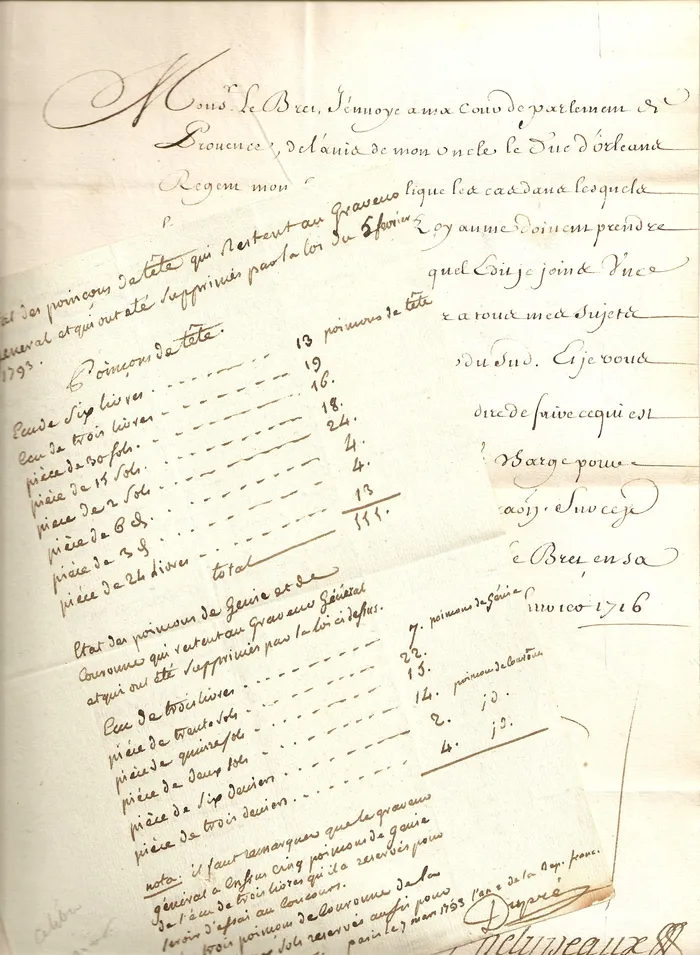 Monsr. Le Bret, J'envoye a ma Cour de parlement de
Provence, de l'avis de mon Oncle le Duc d'Orleans
Regent mon
lique les cas dans lesquels
Royaume doivent prendre
quel Edit je joins Une
ra tous mes sujets
du Sud. Et je vous
dire de suivre ce qui est
Charge pour
Sur ce je
e Bret en sa
1716
at des poinçons de tête qui restent au Graveur
général et qui ont été supprimés par la loi du 5 février
1793.
Poinçons de tête.
Ecu de Six livres 13 poinçons de tête
Ecu de trois livres 19
pièce de 30 sols. 16.
pièce de 15 Sols. 18.
pièce de 2 Sols 24.
pièce de 6 d. 4.
pièce de 3 d 4.
pièce de 24 Livres 13
total 111.
Etat des poinçons de Génie et de
Couronne qui restent au Graveur Général
et qui ont été supprimés par la loi ci dessus.
Ecu de trois livres 7. poinçons de génie
pièce de trente sols 22.
pièce de quinze sols 15.
pièce de deux sols 14. poinçons de Couronne
pièce de six deniers 2. id.
pièce de trois deniers 4. id.
nota: il faut remarquer que le graveur
général a en sus cinq poinçons de génie
de l'écu de trois livres qu'il a réservés pour
servir d'essai au concours.
trois poinçons de Couronne de la
sols réservés aussi pour
paris le 7 mars 1793 l'an 2 de la Rep. franc.
Dupré